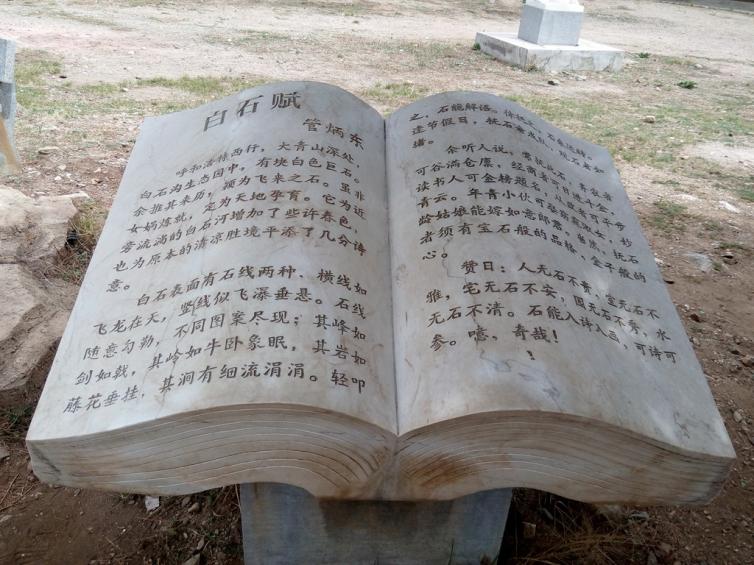 白石赋
管炳东
呼和浩特西行，大青山深处，
白石沟生态园中，有块白色巨石。虽非
余推其来历，颇为飞来之石。
女娲炼就，定为天地孕育。它为近
旁流淌的白石河增加了些许春色，
也为原本的清凉胜境平添了几分诗
意。
白石表面有石线两种，横线如
飞龙在天，竖线似飞瀑垂悬。石线
随意勾勒，不同图案尽现；其峰如
剑如戟，其岭如牛卧象眠，其岩如
藤花垂挂，其涧有细流涓涓。轻叩
之，石能解语。
逢节假日，抚石
堵。
余听人说，常抚此石，养牧者
可谷满仓廪，经商者可日进斗金，
读书人可金榜题名，从政者可平步
青云。年青小伙可娶窈窕淑女，妙
龄姑娘能嫁如意郎君。当然，抚石
者须有宝石般的品格，金子般的
心。
赞曰：人无石不贵，室无石不
雅，宅无石不安，园无石不秀，水
无石不清。石能入诗入画，可诗可
参。噫，奇哉！